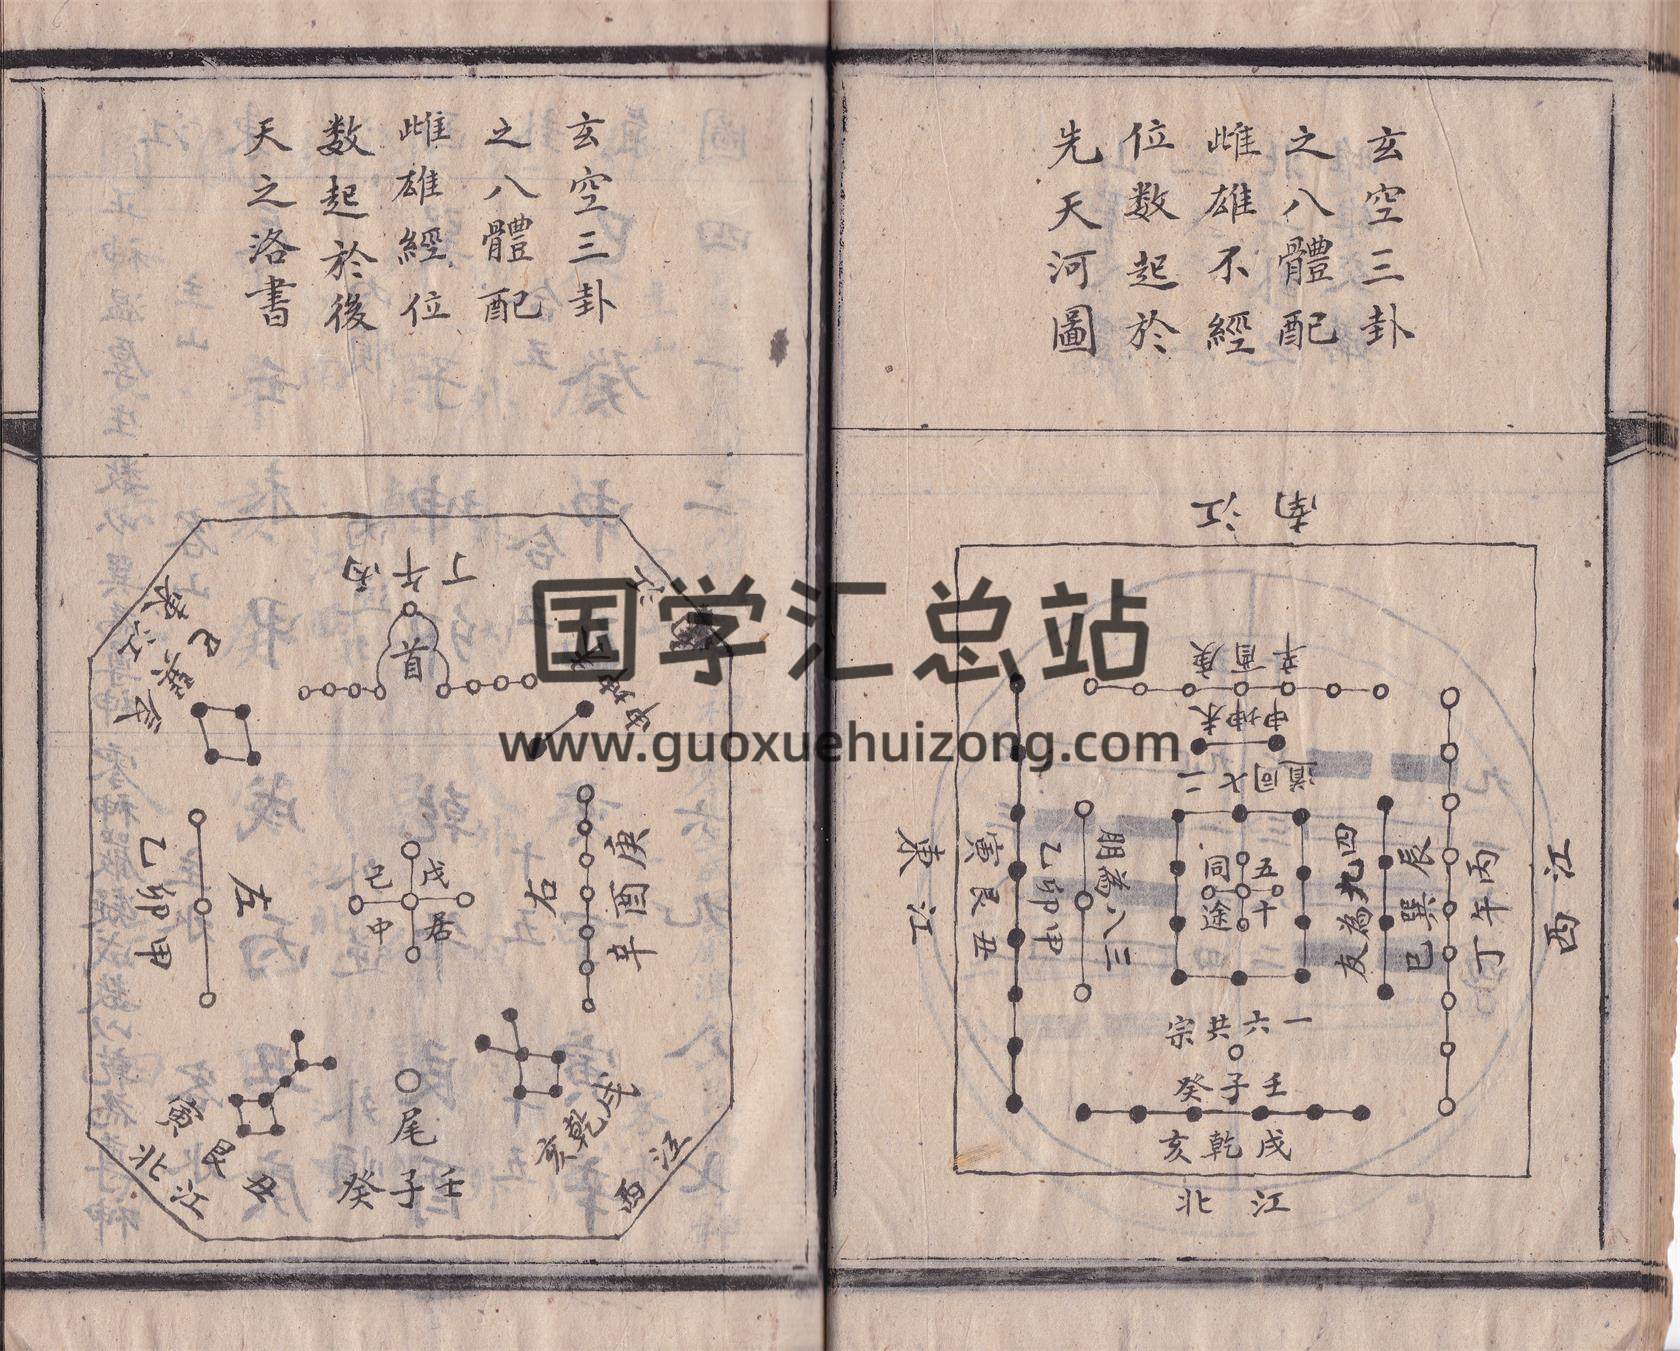 玄空三卦
之八體配
雌雄不經
位数起於
先天河圖
南江
辛酉庚
申坤未
二七同道
東江
寅艮丑
乙卯甲
三八為朋
五十
同途
四九為友
辰巽巳
丙午丁
西江
一六共宗
癸子壬
亥乾戌
北江
玄空三卦
之八體配
雌雄經位
数起於後
天之洛書
丁午丙
首
東江
巳巽辰
乙卯甲
左
己戊
中居
右
庚酉辛
寅艮丑
北江
尾
癸子壬
亥乾戌
西江
国学汇总站
www.guoxuehuizong.com